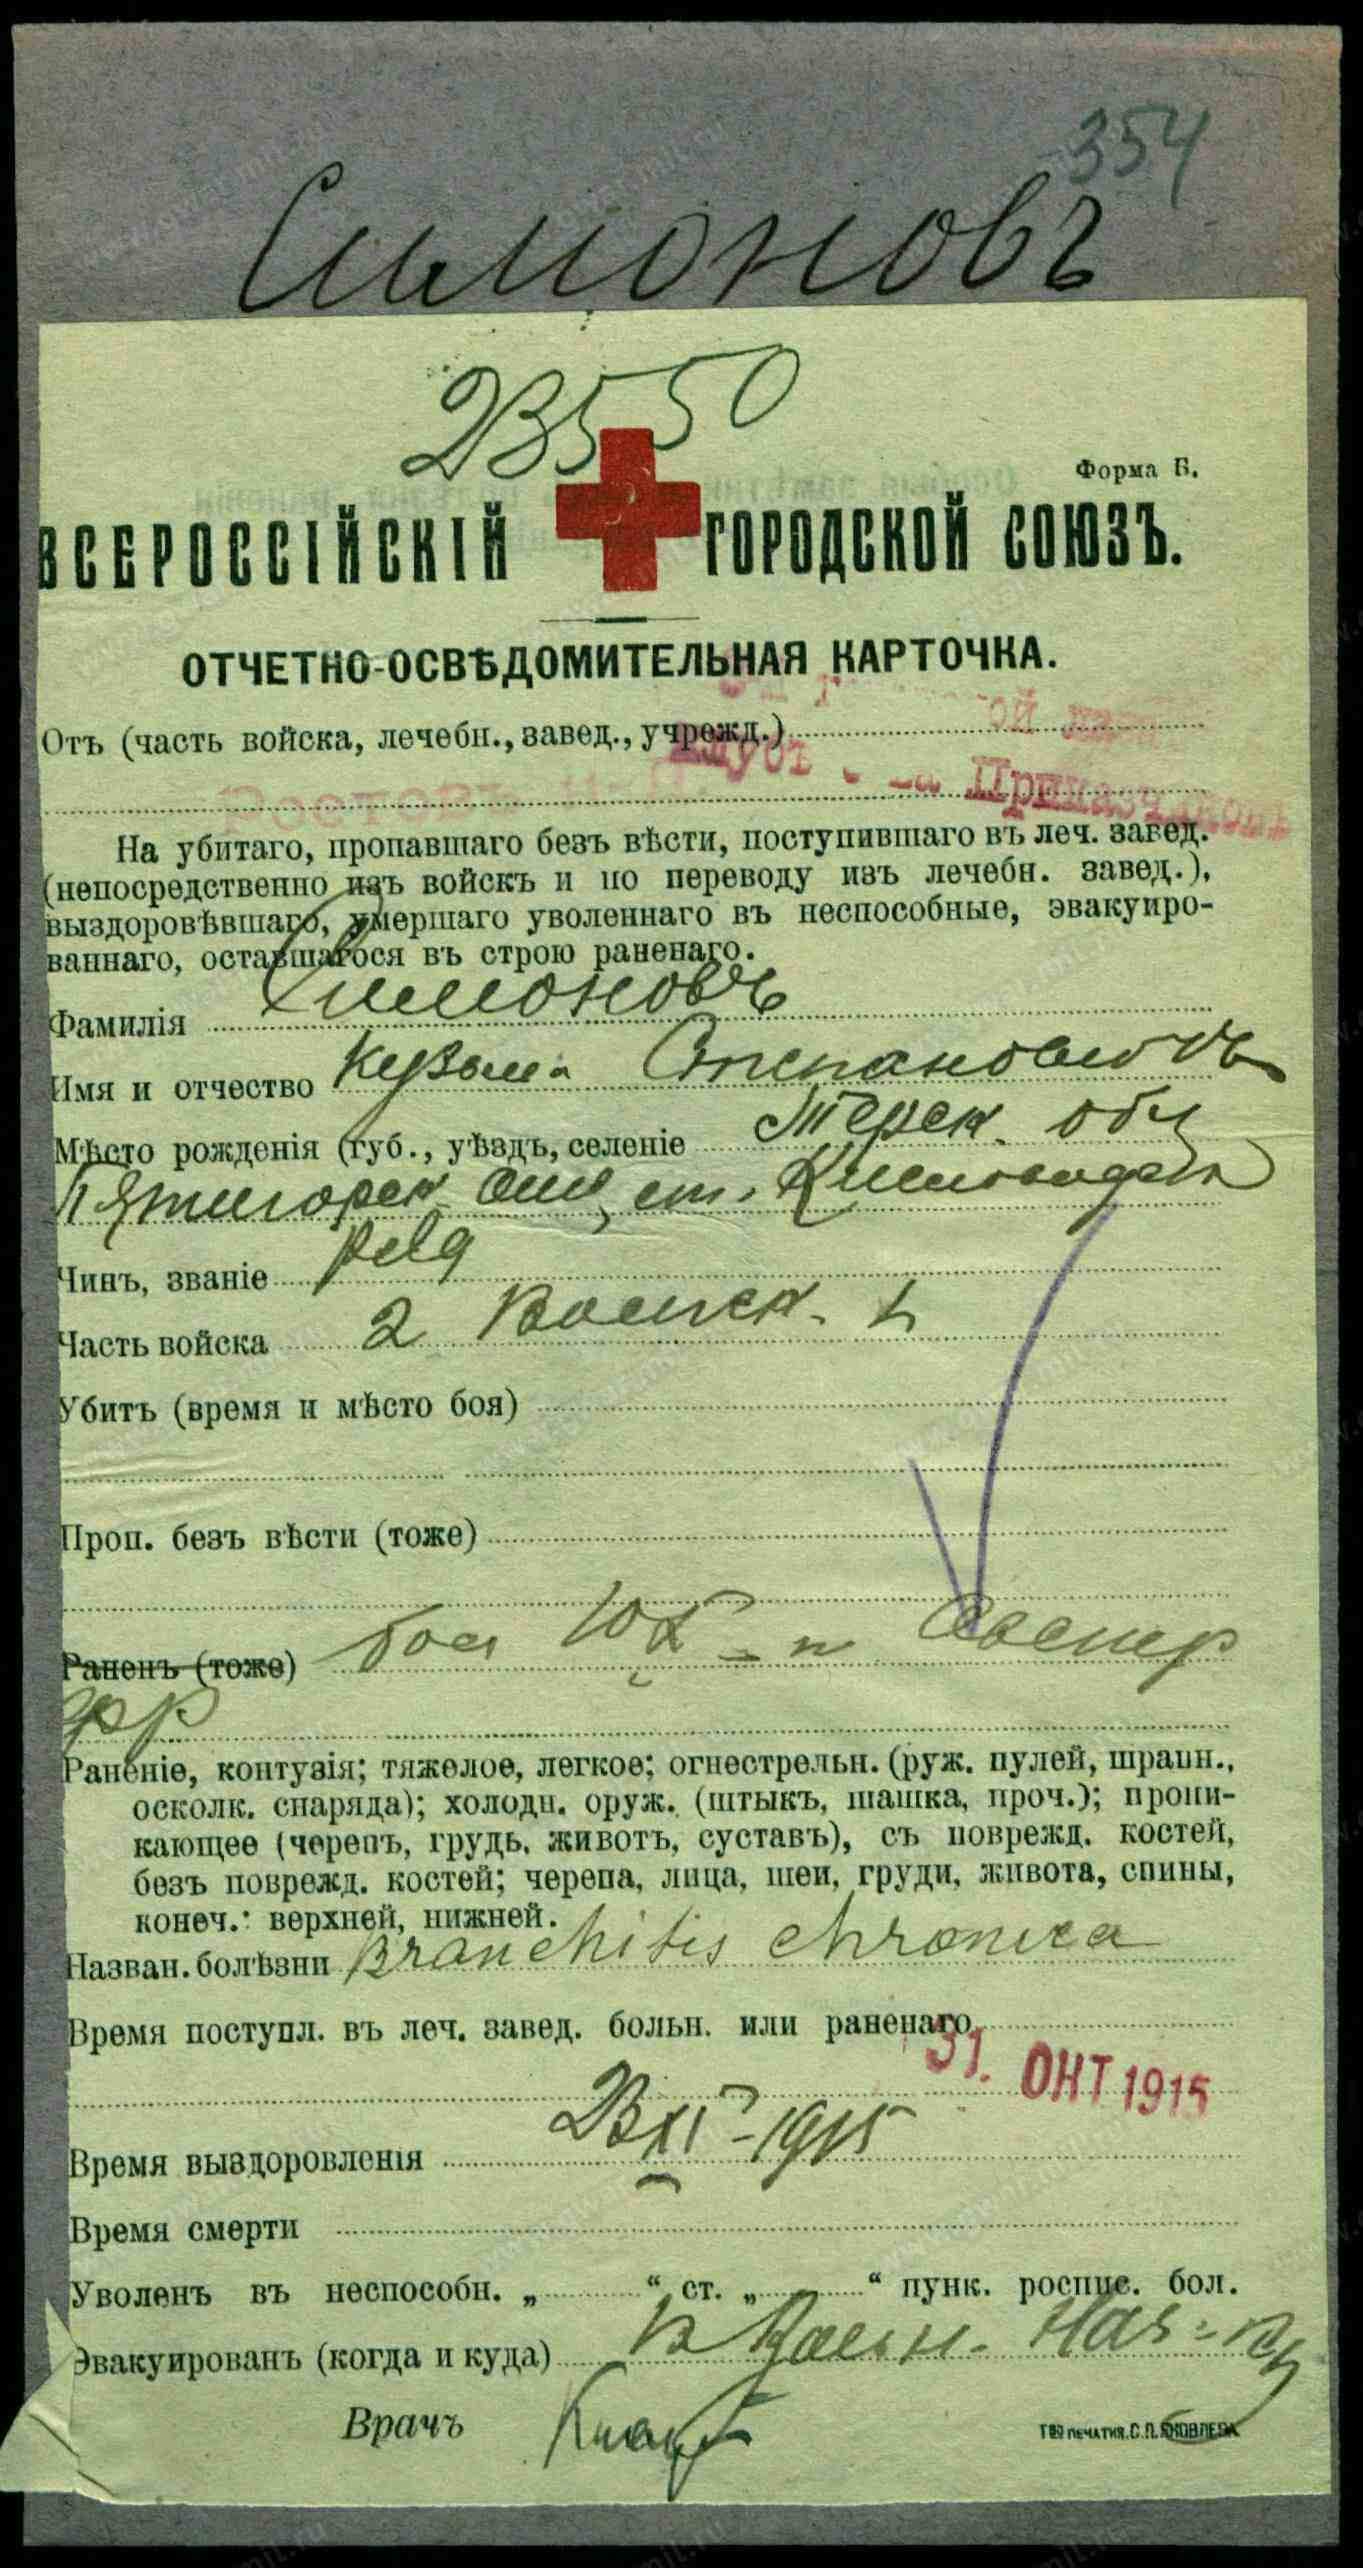 354
Симоновъ
23550
Форма Б.
ВСЕРОССІЙСКІЙ ГОРОДСКОЙ СОЮЗЪ.
ОТЧЕТНО-ОСВѢДОМИТЕЛЬНАЯ КАРТОЧКА.
Отъ (часть войска, лечебн., завед., учрежд.)
На убитаго, пропавшаго безъ вѣсти, поступившаго въ леч. завед.
(непосредственно изъ войскъ и по переводу изъ лечебн. завед.),
выздоровѣвшаго, умершаго уволеннаго въ неспособные, эвакуиро-
ваннаго, оставшагося въ строю раненаго.
Фамилія Симоновъ
Имя и отчество Кузьма Степановичъ
Мѣсто рожденія (губ., уѣздъ, селеніе Терск. обл
Пятигорск. отд, ст. Кисловодск
Чинъ, званіе ряд
Часть войска 2
Убитъ (время и мѣсто боя)
Проп. безъ вѣсти (тоже)
Раненъ (тоже)
фр
Раненіе, контузія; тяжелое, легкое; огнестрельн. (руж. пулей, шрапн.,
осколк. снаряда); холодн. оруж. (штыкъ, шашка, проч.); прони-
кающее (черепъ, грудь, животъ, суставъ), съ поврежд. костей,
безъ поврежд. костей; черепа, лица, шеи, груди, живота, спины,
конеч.: верхней, нижней.
Назван. болѣзни Bronchitis chronica
Время поступл. въ леч. завед. больн. или раненаго
31. ОКТ 1915
Время выздоровленія 23 XI - 1915
Время смерти
Уволенъ въ неспособн. „ “ ст. „ “ пунк. роспис. бол.
Эвакуированъ (когда и куда) к Воин. Нач-ку
Врачъ
Т-во ПЕЧАТНЯ. С. П. ЯКОВЛЕВА